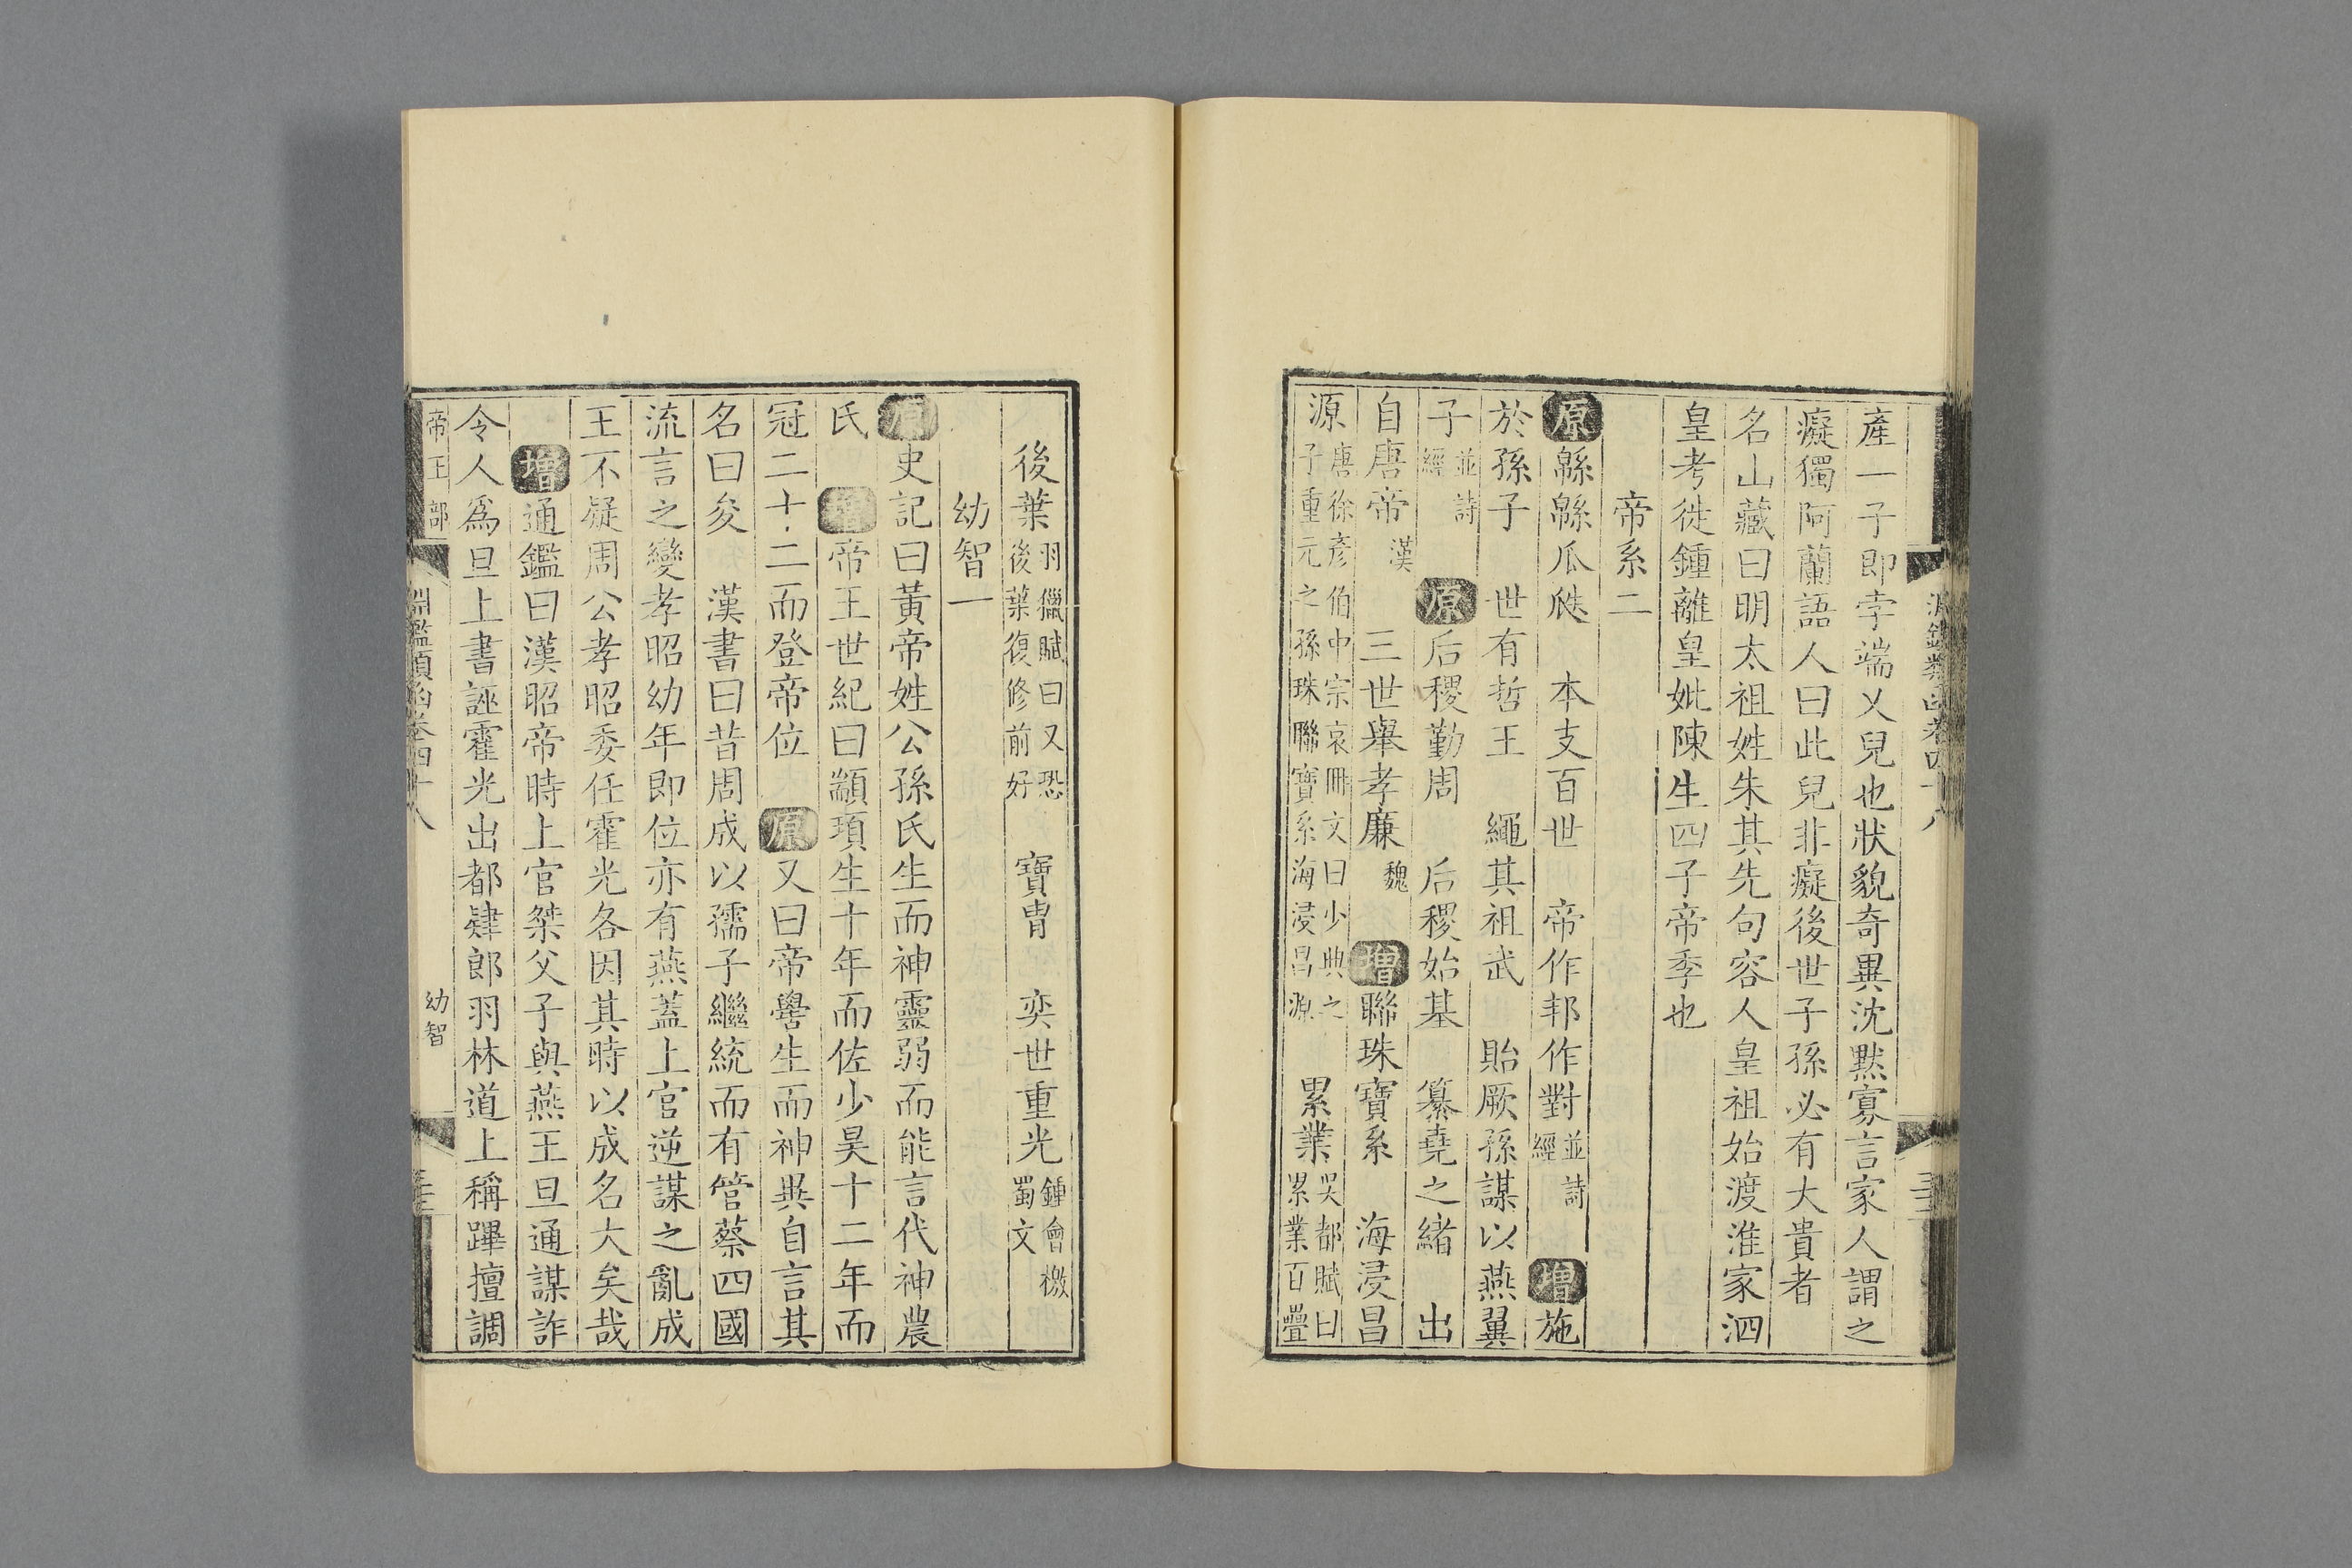 產一子即孛端乂兒也狀貌奇異沈黙寡言家人謂之
癡獨阿蘭語人曰此兒非癡後世子孫必有大貴者
名山藏曰明太祖姓朱其先句容人皇祖始渡淮家泗
皇考徙鍾離皇妣陳生四子帝季也
帝系二
原緜緜瓜瓞　本支百世　帝作邦作對並詩經　增施
於孫子　世有哲王　繩其祖武　貽厥孫謀以燕翼
子並詩經　原后稷勤周　后稷始基　纂堯之緒　出
自唐帝漢　三世舉孝廉魏　增聯珠寶系　海浸昌
源唐徐彥伯中宗哀冊文曰少典之子重元之孫珠聯寶系海浸昌源　累業吳都賦曰累業百疊
淵鑑類函卷四十八
後葉羽獵賦曰又恐後葉復修前好　寶胄　奕世重光鍾會檄蜀文
幼智一
原史記曰黃帝姓公孫氏生而神靈弱而能言代神農
氏　增帝王世紀曰顓頊生十年而佐少昊十二年而
冠二十二而登帝位　原又曰帝嚳生而神異自言其
名曰夋　漢書曰昔周成以孺子繼統而有管蔡四國
流言之變孝昭幼年即位亦有燕蓋上官逆謀之亂成
王不疑周公孝昭委任霍光各因其時以成名大矣哉
增通鑑曰漢昭帝時上官桀父子與燕王旦通謀詐
令人爲旦上書誣霍光出都肄郎羽林道上稱蹕擅調
帝王部　淵鑑類函卷四十八　幼智